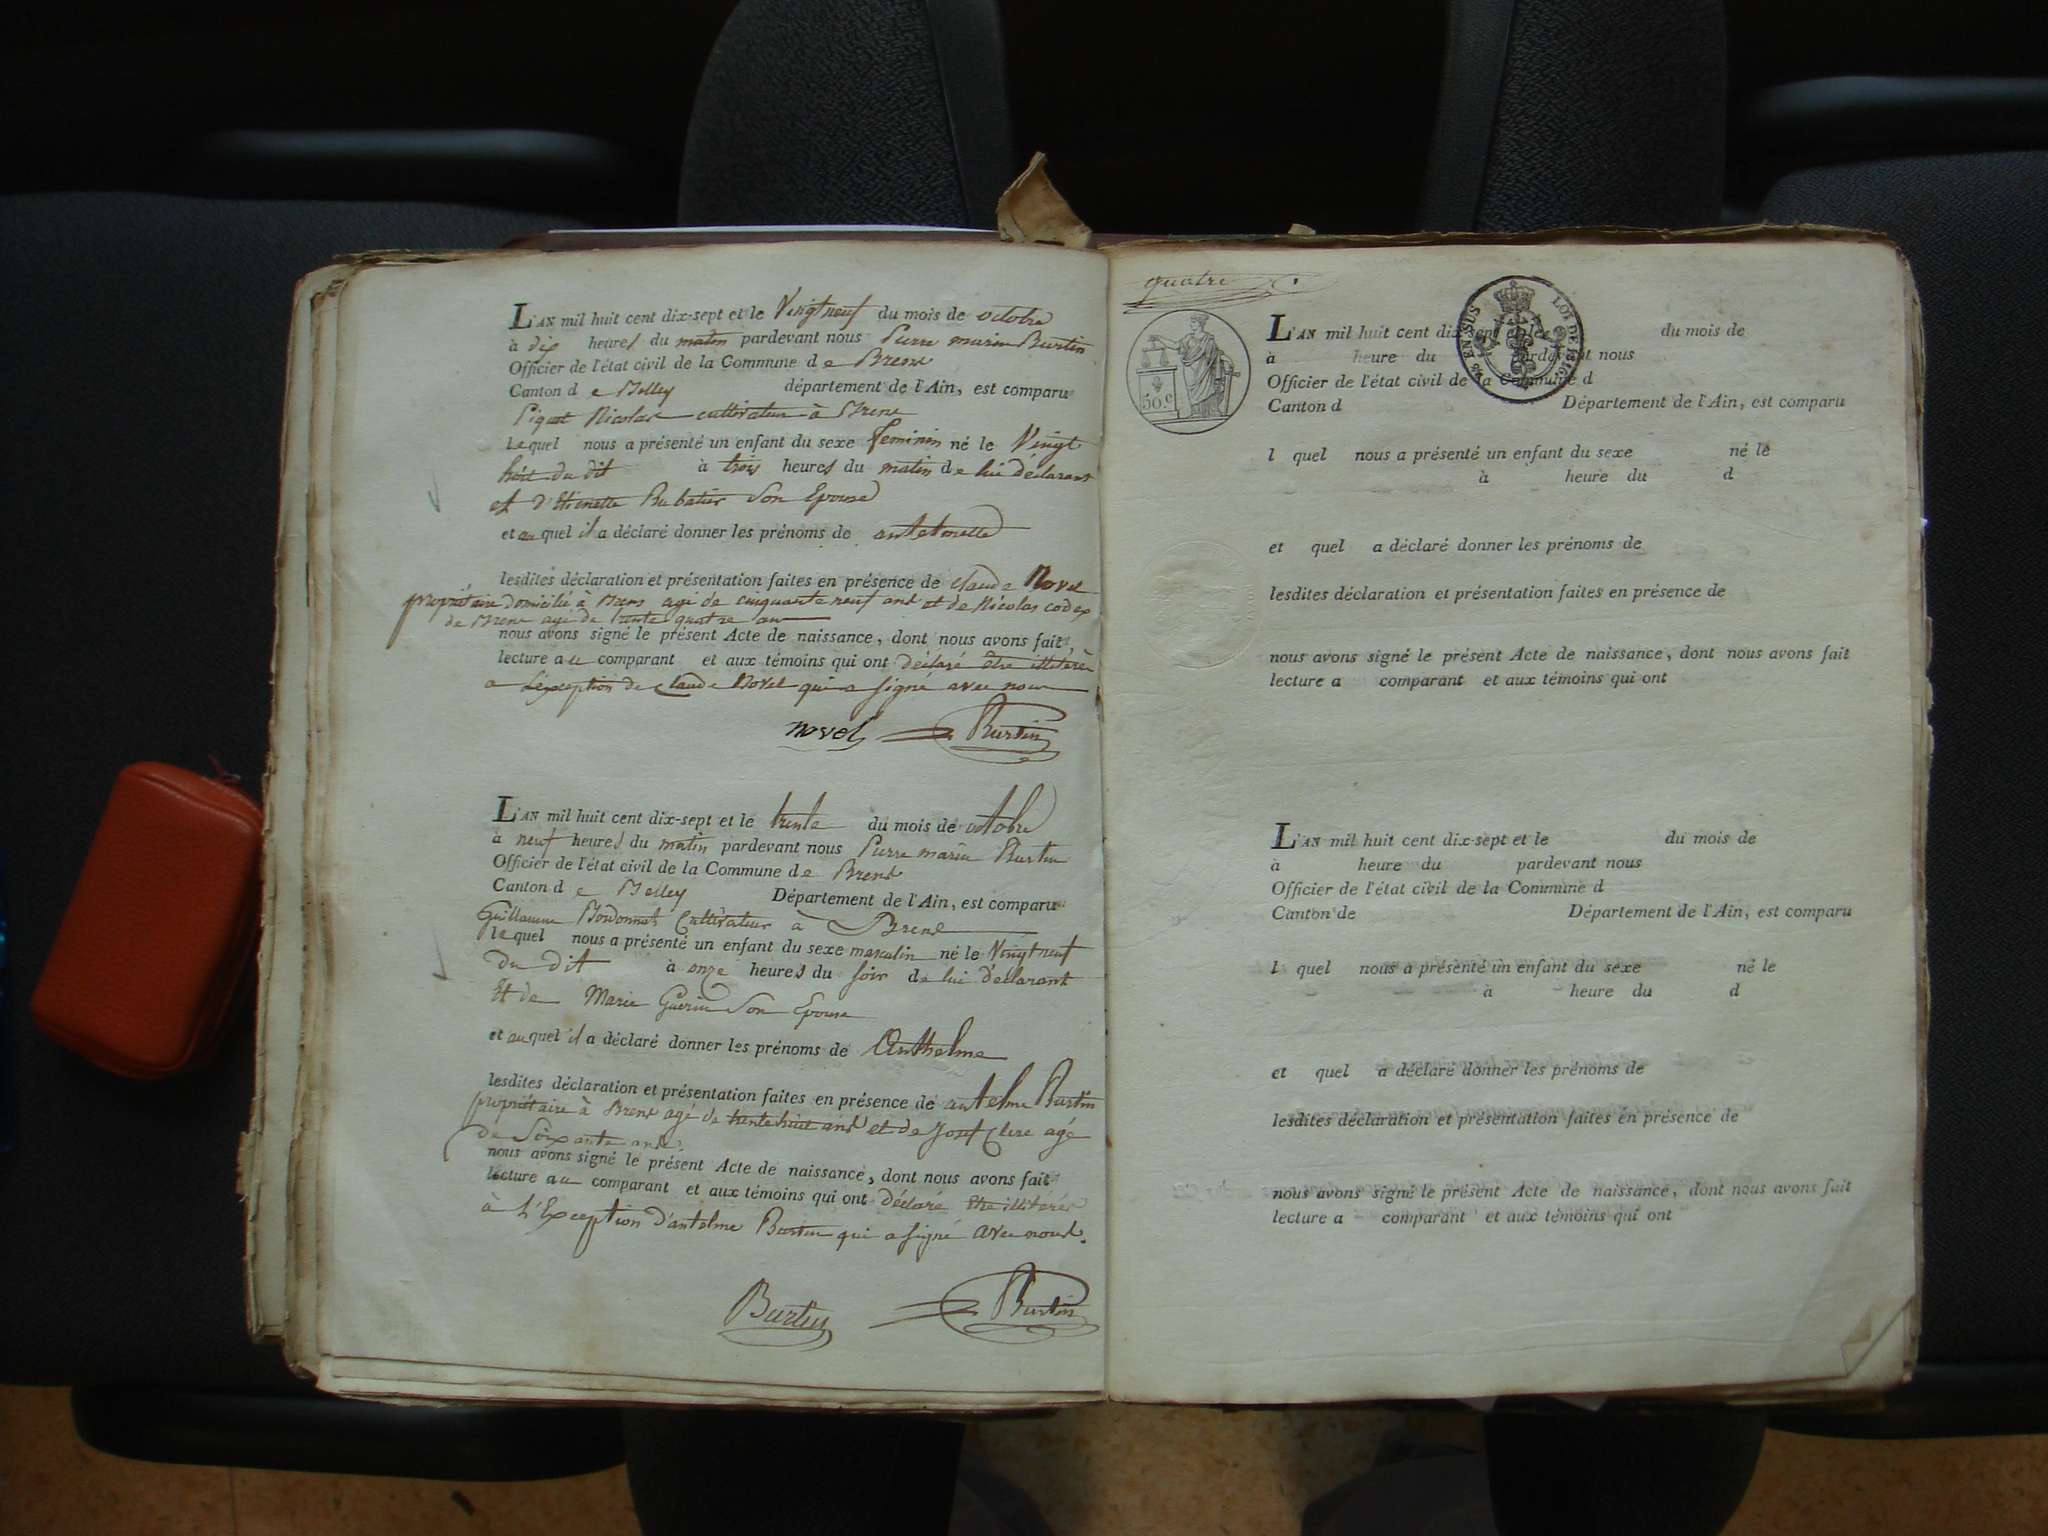 L'AN mil huit cent dix-sept et le Vingt neuf du mois de octobre
à dix heures du matin pardevant nous Pierre marin Burtin
Officier de l'état civil de la Commune de Brens
Canton de Belley département de l'Ain, est comparu
Nicolas cultivateur à Brens
Lequel nous a présenté un enfant du sexe feminin né le Vingt
huit du dit à trois heures du matin de lui déclarant
et d'Etienette Rubatier Son Epouse
et au quel il a déclaré donner les prénoms de
lesdites déclaration et présentation faites en présence de claude Novel
propriétaire domicilié à Brens agé de cinquante neuf ans et de Nicolas codex
de Brens agé de trente quatre ans
nous avons signé le présent Acte de naissance, dont nous avons fait
lecture au comparant et aux témoins qui ont déclaré être illiteré
a L'exception de Claude Novel qui a signé avec nous
novel Burtin
L'AN mil huit cent dix-sept et le trente du mois de octobre
à neuf heures du matin pardevant nous Pierre marin Burtin
Officier de l'état civil de la Commune de Brens
Canton de Belley Département de l'Ain, est comparu
Guillaume Cultivateur à Brens
lequel nous a présenté un enfant du sexe masculin né le Vingt neuf
du dit à onze heures du soir de lui déclarant
Et de Marie Guerin Son Epouse
et au quel il a déclaré donner les prénoms de Anthelme
lesdites déclaration et présentation faites en présence de antelme Burtin
propriétaire à Brens agé de trente huit ans et de Josef Clerc agé
de Soixante ans
nous avons signé le présent Acte de naissance, dont nous avons fait
lecture au comparant et aux témoins qui ont déclaré être illiterés
à L'Exception d'antelme Burtin qui a signé avec nous.
Burtin Burtin
quatre
50.c
EN SUS LOI DE 1816
L'AN mil huit cent dix-sept et le du mois de
à heure du pardevant nous
Officier de l'état civil de la Commune d
Canton d Département de l'Ain, est comparu
l quel nous a présenté un enfant du sexe né le
à heure du d
et quel a déclaré donner les prénoms de
lesdites déclaration et présentation faites en présence de
nous avons signé le présent Acte de naissance, dont nous avons fait
lecture a comparant et aux témoins qui ont
L'AN mil huit cent dix-sept et le du mois de
à heure du pardevant nous
Officier de l'état civil de la Commune d
Canton de Département de l'Ain, est comparu
l quel nous a présenté un enfant du sexe né le
à heure du d
et quel a déclaré donner les prénoms de
lesdites déclaration et présentation faites en présence de
nous avons signé le présent Acte de naissance, dont nous avons fait
lecture a comparant et aux témoins qui ont